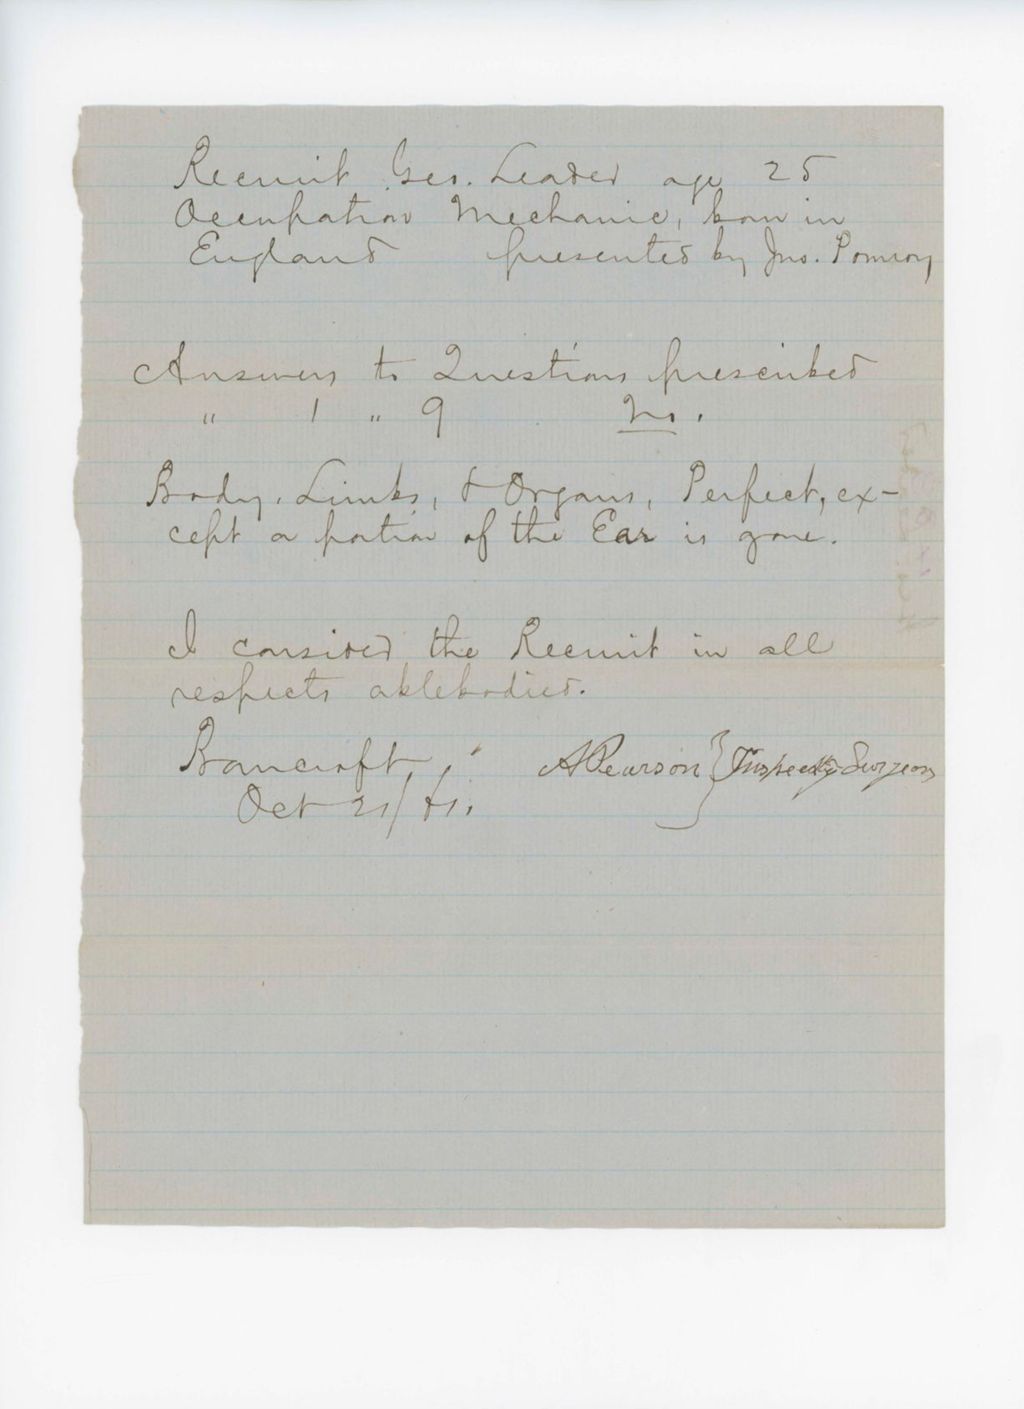 Recruit Geo. Leader age 25
Occupation Mechanic, born in
England presented by Jno. Pomroy
Answers to Questions prescribed
" 1 " 9 No.
Body, Limbs, & Organs, Perfect, ex-
cept a portion of the Ear is gone.
I consider the Recruit in all
respects ablebodied.
Bancroft, A Pearson } Inspectg Surgeon
Oct 21/61.